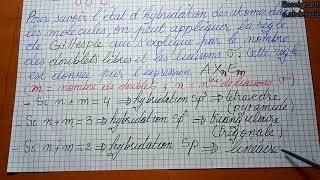 Pour savoir l'état d'hybridation des atomes dans
les molécules, on peut appliquer la règle
de Gillespie qui s'explique par le nombre
des doublets libres et les liaisons σ. Cette règle
est donnée par l'expression AXnEm
(m = nombre de doublets, n = nbre de liaisons σ)
- Si n+m = 4 ⇒ hybridation sp³ ⇒ tétraèdre
(pyramide)
Si n+m = 3 ⇒ hybridation sp² ⇒ triangulaire
(trigonale)
- Si n+m = 2 ⇒ hybridation sp ⇒ linéaire